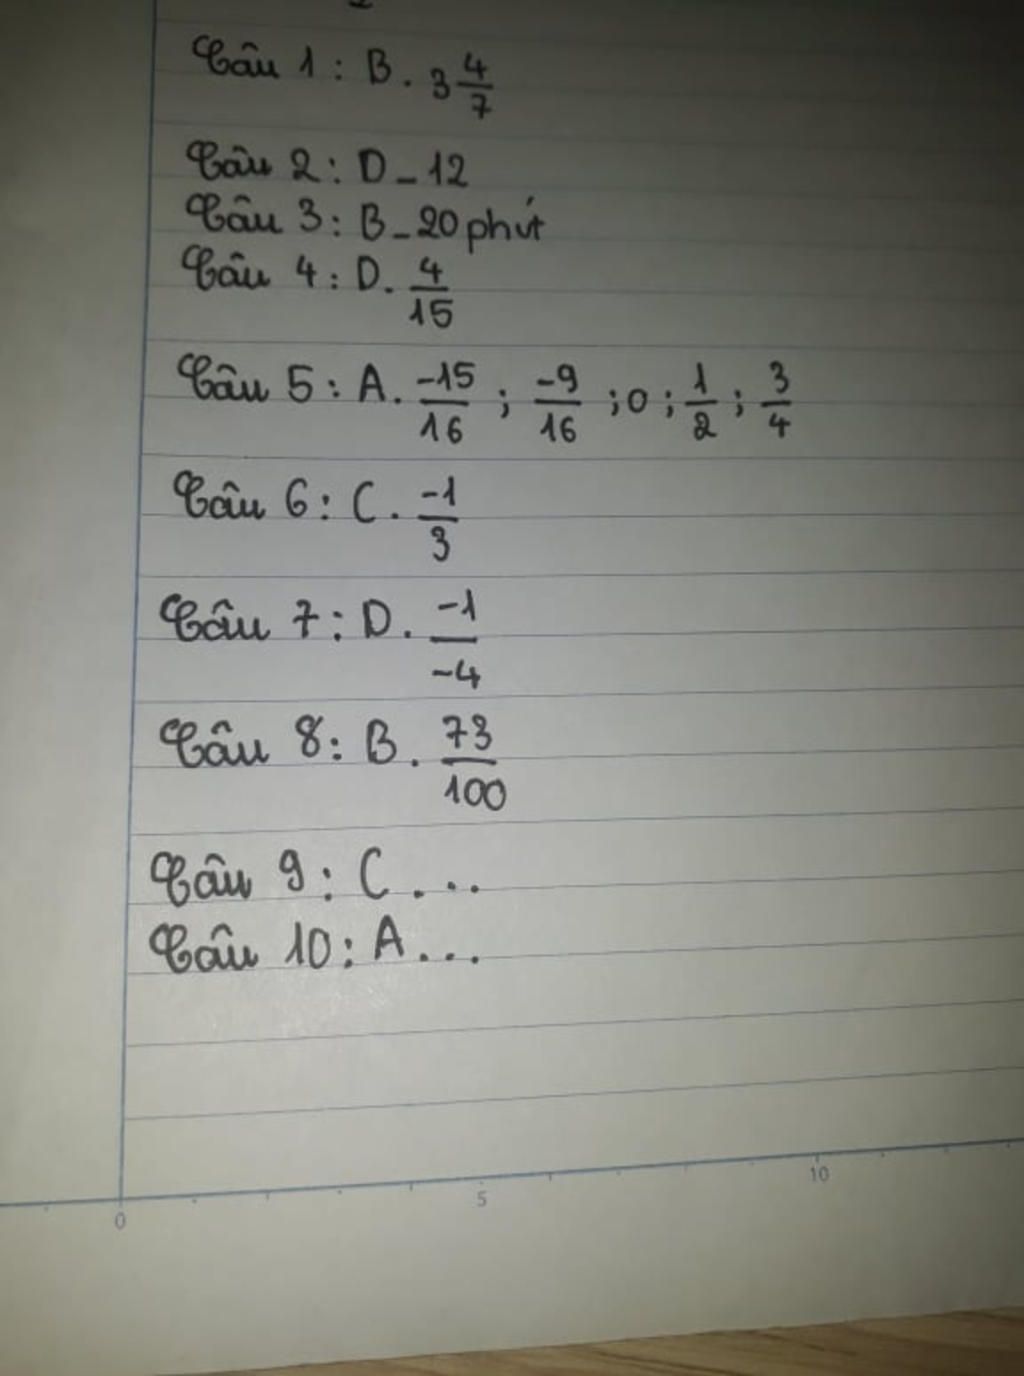 Câu 1: B. 3 4/7
Câu 2: D - 12
Câu 3: B - 20 phút
Câu 4: D. 4/15
Câu 5: A. -15/16 ; -9/16 ; 0 ; 1/2 ; 3/4
Câu 6: C. -1/3
Câu 7: D. -1/-4
Câu 8: B. 73/100
Câu 9: C ...
Câu 10: A ...
0 5 10